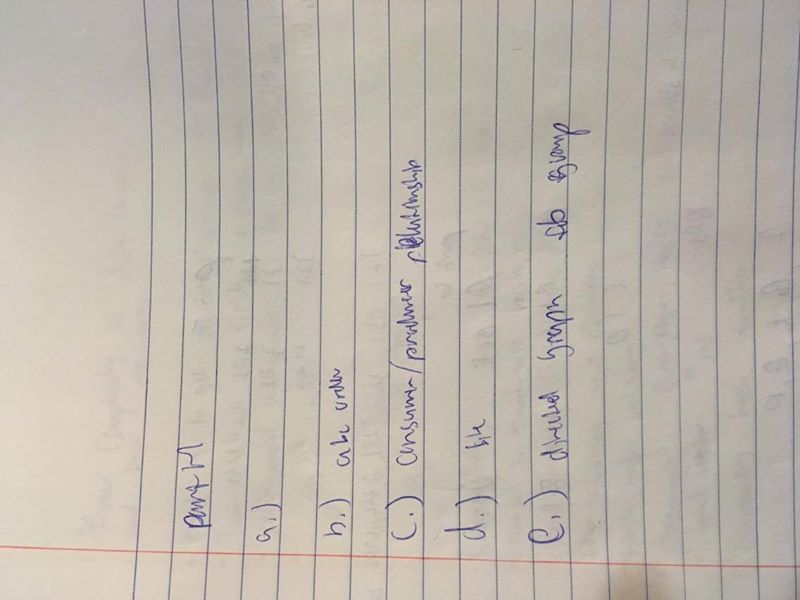 part
a.)
b.) abc order
c.) consumer/producer relationship
d.)
e.) directed graph fb group